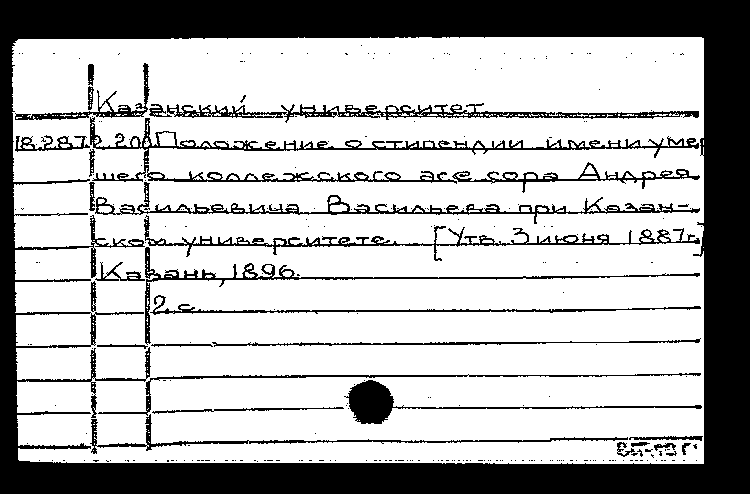 Казанский университет
18.287.2.200 Положение о стипендии имени умер
шего коллежского асе сора Андрея
Васильевича Васильева при Казан-
ском университете. [Утв. 3 июня 1887г.]
Казань, 1896.
2 с.